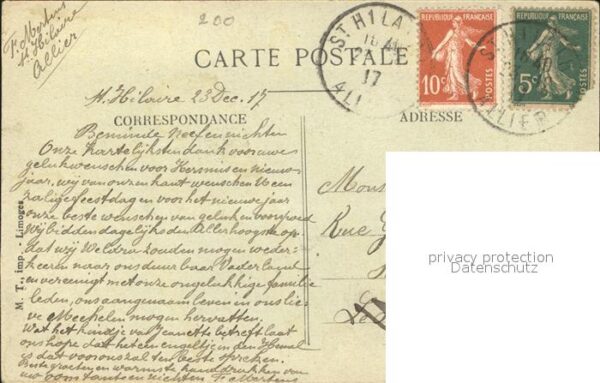 200
F. Mertens
St. Hilaire
Allier
CARTE POSTALE
ST HILAI
17
ALLIER
REPUBLIQUE FRANÇAISE
10c
POSTES
REPUBLIQUE FRANÇAISE
5c
POSTES
St. Hilaire 23 Dec. 17
CORRESPONDANCE
ADRESSE
Beminde Neef en nichten
Onze hartelijksten dank voor uwe
gelukwenschen voor Kersmis en nieuw
jaar, wij van onzen kant wenschen U een
zalige feestdagen en voor het nieuwe jaar
onze beste wenschen van geluk en voorspoed
Wij bidden dagelijks den Allerhoogste op
dat wij Weldra zouden mogen weder
keeren naar ons duurbaar Vaderland
en vereenigt met onze ongelukkige familie
leden, ons aangenaam leven in ons lie
ve Mechelen mogen hervatten.
Wat het kindje van Jeanette betreft laat
ons hopen dat het een engeltje in den Hemel
is dat voor ons zal ten beste spreken.
Beste groeten en warmste handdrukken van
uw oom tante en nichten F. Mertens
M. T., imp. - Limoges
Mons
Rue
privacy protection
Datenschutz